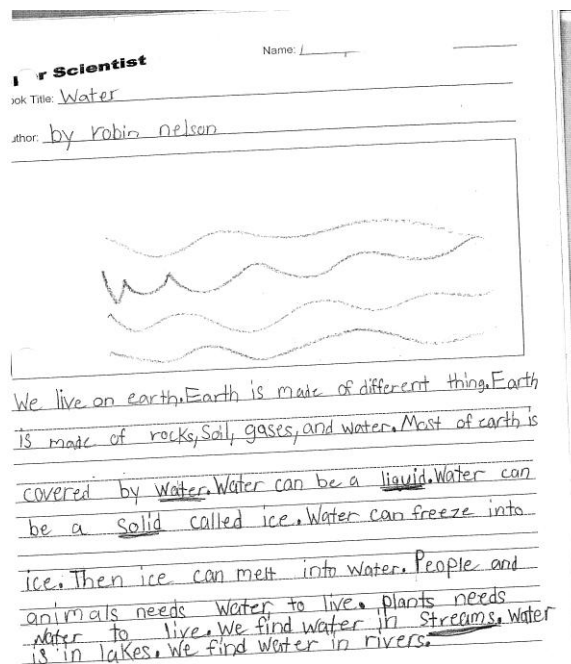 r Scientist
Name:
ook Title: Water
uthor: by robin nelson
We live on earth. Earth is made of different thing. Earth
is made of rocks, Soil, gases, and water. Most of earth is
covered by water. Water can be a liquid. Water can
be a solid called ice. Water can freeze into
ice. Then ice can melt into water. People and
animals needs water to live. plants needs
water to live. We find water in streams. Water
is in lakes. We find water in rivers.